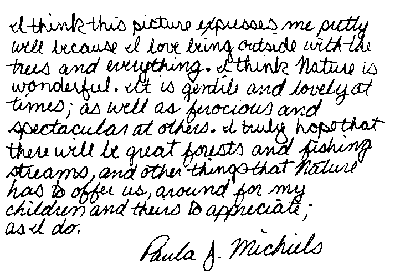 I think this picture expresses me pretty
well because I love being outside with the
trees and everything. I think Nature is
wonderful. It is gentle and lovely at
times; as well as ferocious and
spectacular at others. I truly hope that
there will be great forests and fishing
streams, and other things that Nature
has to offer us, around for my
children and theirs to appreciate;
as I do.
Paula J. Michiels